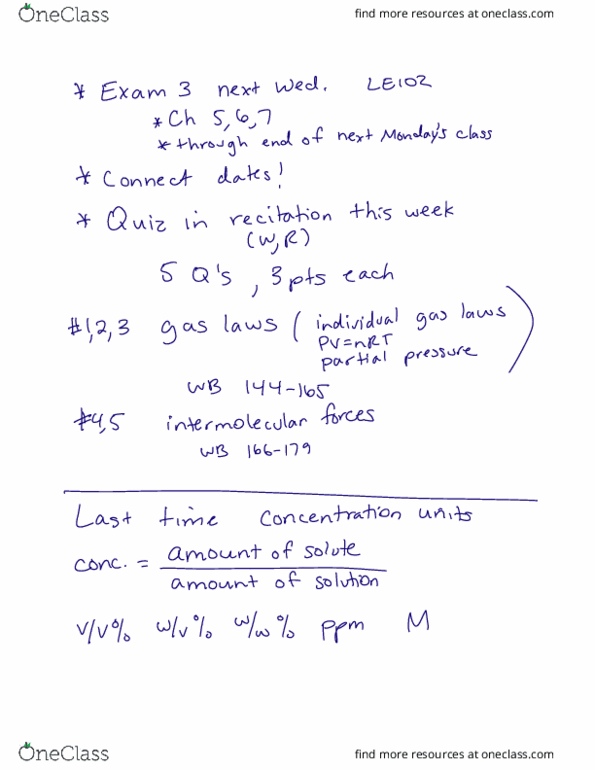 OneClass
find more resources at oneclass.com
* Exam 3 next Wed. LE102
* Ch 5,6,7
* through end of next Monday's class
* Connect dates!
* Quiz in recitation this week
(W,R)
5 Q's, 3 pts each
#1,2,3 gas laws ( individual gas laws
PV=nRT
partial pressure )
WB 144-165
#4,5 intermolecular forces
WB 166-179
Last time concentration units
conc. = amount of solute
amount of solution
v/v% w/v% w/w% ppm M
OneClass
find more resources at oneclass.com